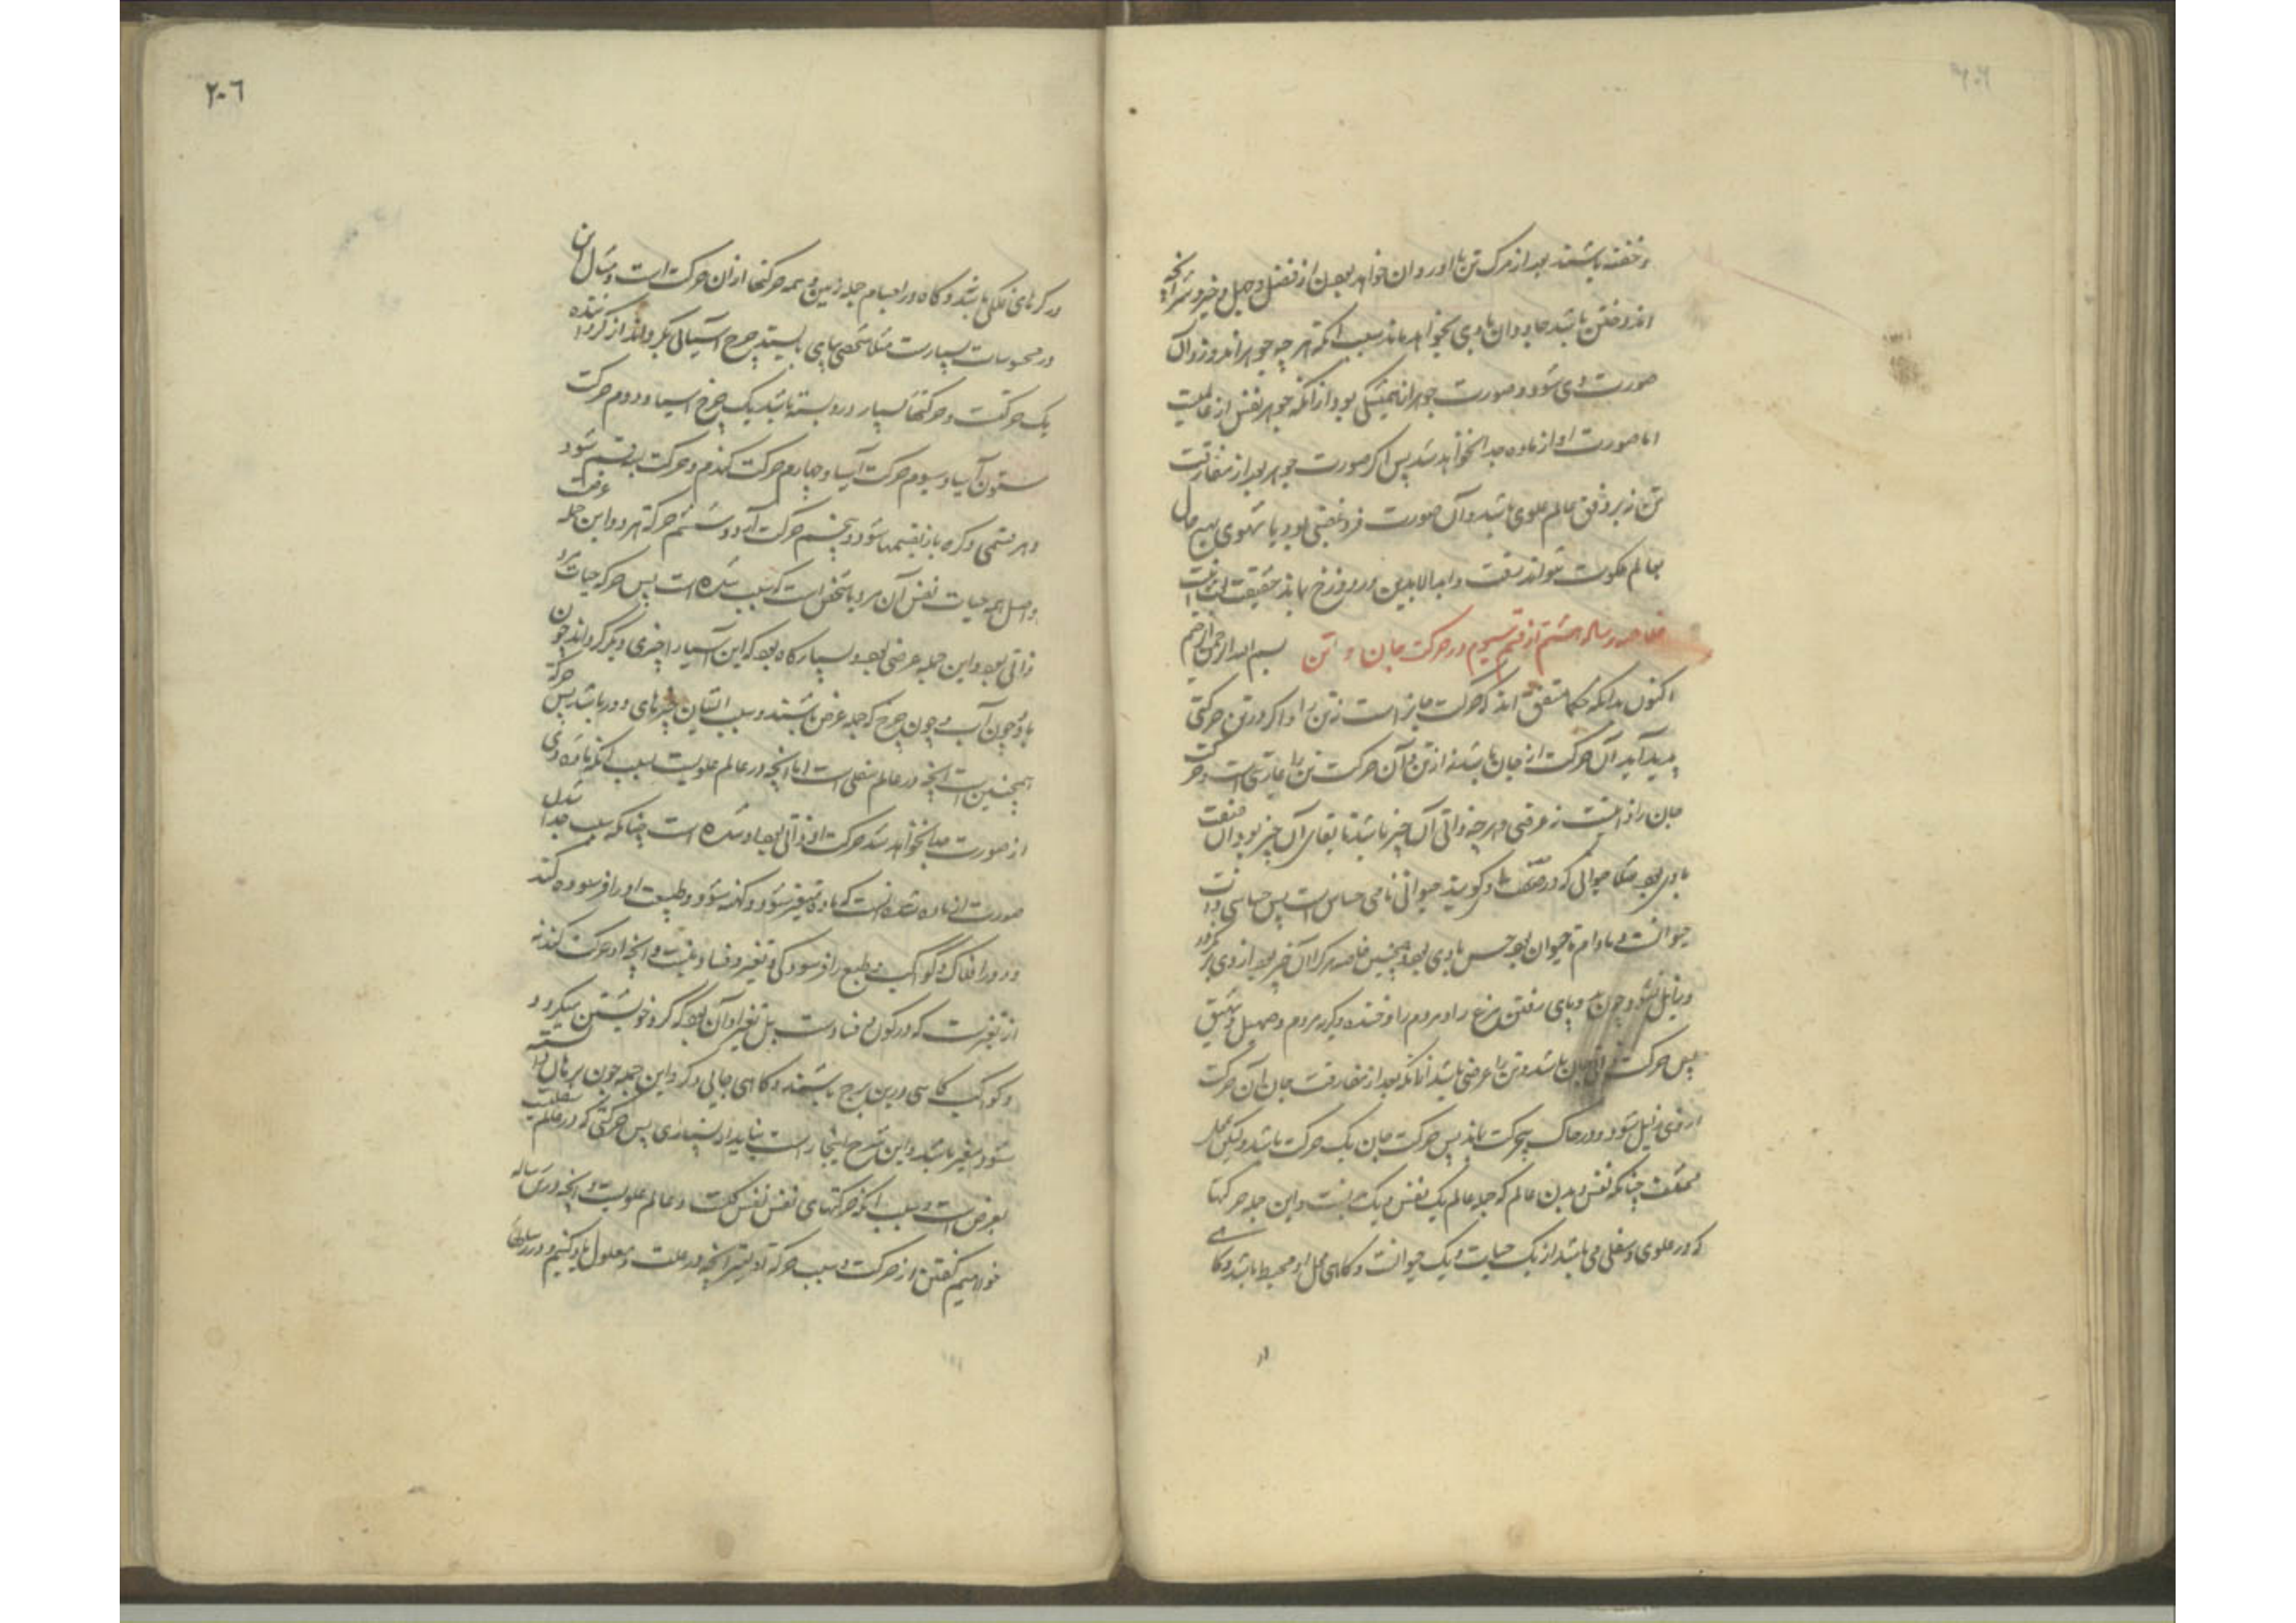 و خفته باشند بعد از مرک تن با او روان خواهد بودن از فضل و جهل و خیر و شر و آنچه
اندوختن باشد جاودان با وی بخواهد ماند بسبب آنکه هر چه جوهر اندوزد آن
صورت وی شود و صورت جوهرانه همیشکی بود از آنکه جوهر نفس از
اما صورت او از ماده جدا نخواهد شد پس اکر صورت جوهر بعد از مفارقت
تن نه بر وفق عالم علوی باشد و آن صورت فرد غضبی بود یا شهوی بهیچ حال
بعالم ملکوت نتواند رفت و ابدالابدین در دوزخ بماند حقیقت اینست
خلاصه رساله هشتم از قسم سیوم در حرکت جان و تن بسم الله الرحمن الرحیم
اکنون بدانکه حکما متفق اند که حرکت جانراست نه تن را و اکر در تن حرکتی
پدید آید آن حرکت از جان باشد نه از تن و آن حرکت تن را عاریتی است و حرکت
جان را ذاتیست نه عرضی و هر چه ذاتی آن چیز باشد تا بقای آن چیز بود آن صفت
با وی بود مثلا حیوانی که در صفت او کویند حیوانی نامی حساس است پس حساسی ذات
حیوانست و مادام تا حیوان بود حس با وی بود و همچنین خاصه هرکز آن چیز بود از وی
و زایل نشود چون دو پای رفتن مرغ را و مردم را و خنده و کریه مردم و صهیل و نهیق
پس حرکت ذاتی جان باشد و تن را عرضی باشد از آنکه بعد از مفارقت جان آن حرکت
از وی زایل شود و در خاک بیحرکت بماند پس حرکت جان یک حرکت باشد ولیکن محل
مختلف چنانکه نفس و بدن عالم که جمله عالم یک نفس و یک بدنست و این جمله حرکتها
که در علوی و سفلی می باشد از یک حیات و یک حیوانست و کاهی محل او محیط باشد و کاهی
در
۲۰۶
در کرهای فلکی باشد و کاه در اجسام جمله زمین و همه حرکتها از آن حرکت است و مثال این
در محسوسات بسیارست مثلا شخصی بپای بایستد چرخ آسیائی بکرداند از کرداننده
یک حرکتست و حرکتها بسیار درو بسته باشد یک چرخ آسیا و دوم حرکت
ستون آسیا و سیوم حرکت آسیا و چهارم حرکت کندم و حرکت به قسم شود
و هر قسمی دکره باز بقسمها شود و پنجم حرکت آرد و ششم حرکة هر دو و این جمله عرضست
و اصل همه حیات نفس آن مرد یا شخص است که سبب شده است پس حرکه حیات مرد
ذاتی بود و این جمله عرضی بود و بسیار کاه بود که این آسیا را چیزی دیکر کرداند چون
باد و چون آب و چون چرخ که جمله عرض باشند و سبب ایشان چیزهای دور باشد پس حرکة
همچنین است آنچه در عالم سفلی است اما آنچه در عالم علویست بسبب آنکه ماده وی
از صورت جدا نخواهد شد حرکت او ذاتی بود او شده است چنانکه سبب جدا شدن
صورت از ماده شده است که ماده متغیر شود و کهنه شود و طبیعت او را فرسوده کند
و در افلاک و کواکب طبع را فرسودکی و تغیر و فساد نیست و آنچه او حرکت کند نه
از تغیرست که در کون و فسادست بل تغیر او آن بود که کرد خویشتن میکردد
و کواکب کاهی درین برج باشند و کاهی جایی دکر و این جمله چون برهان دانسته
شود متغیر باشد و این شرح اینجا راست نیاید از بسیاری پس حرکتی که در عالم سفلیست
بعرض است و سبب آنکه حرکتهای نفس نفس کلست و عالم علویست و آنچه در رساله
خواهیم کفتن از حرکت و سبب حرکة او بیشتر آنچه در علت و معلول یاد کنیم و در رساله